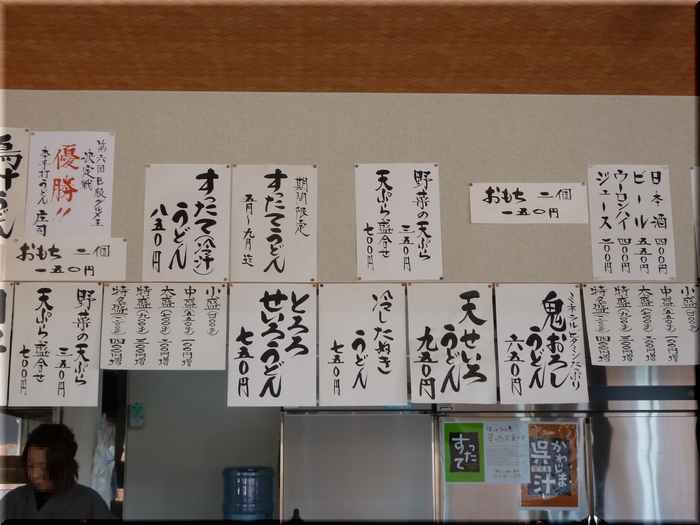 鳥汁うどん
第六回B級グルメ王
決定戦
優勝!!
本手打うどん 庄司
おもち 二個
一五〇円
野菜の天ぷら
三五〇円
天ぷら盛合せ
七〇〇円
小盛(400g)
中盛(500g) 一〇〇円増
大盛
特盛 三〇〇円増
特々盛 四〇〇円増
すったて(冷汁)
うどん
八五〇円
期間限定
五月〜九月迄
すたてうどん
野菜の天ぷら
三五〇円
天ぷら盛合せ
七〇〇円
おもち 二個
一五〇円
日本酒 四〇〇円
ビール 五五〇円
ウーロンハイ 四〇〇円
ジュース 二〇〇円
とろろ
せいろうどん
七五〇円
冷したぬき
うどん
七五〇円
天せいろ
うどん
九五〇円
ミネラルビタミンたっぷり
鬼おろし
うどん
六五〇円
小盛
中盛
大盛
特盛
特々盛
すったて
かわじま
呉汁